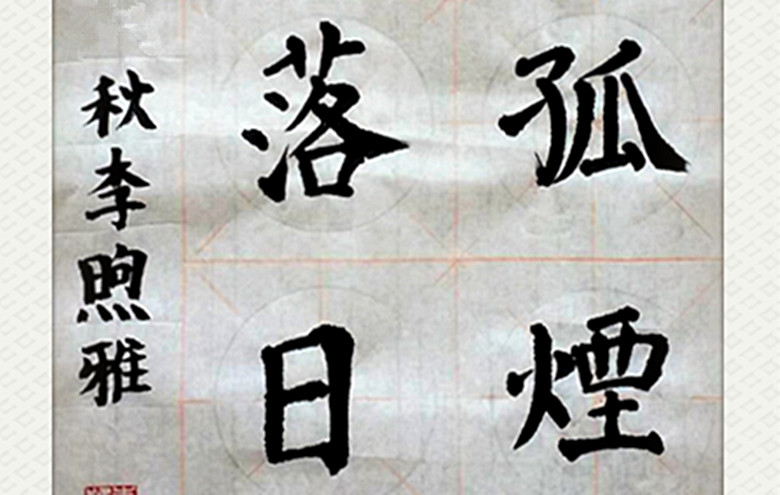 孤煙
落日
秋李煦雅